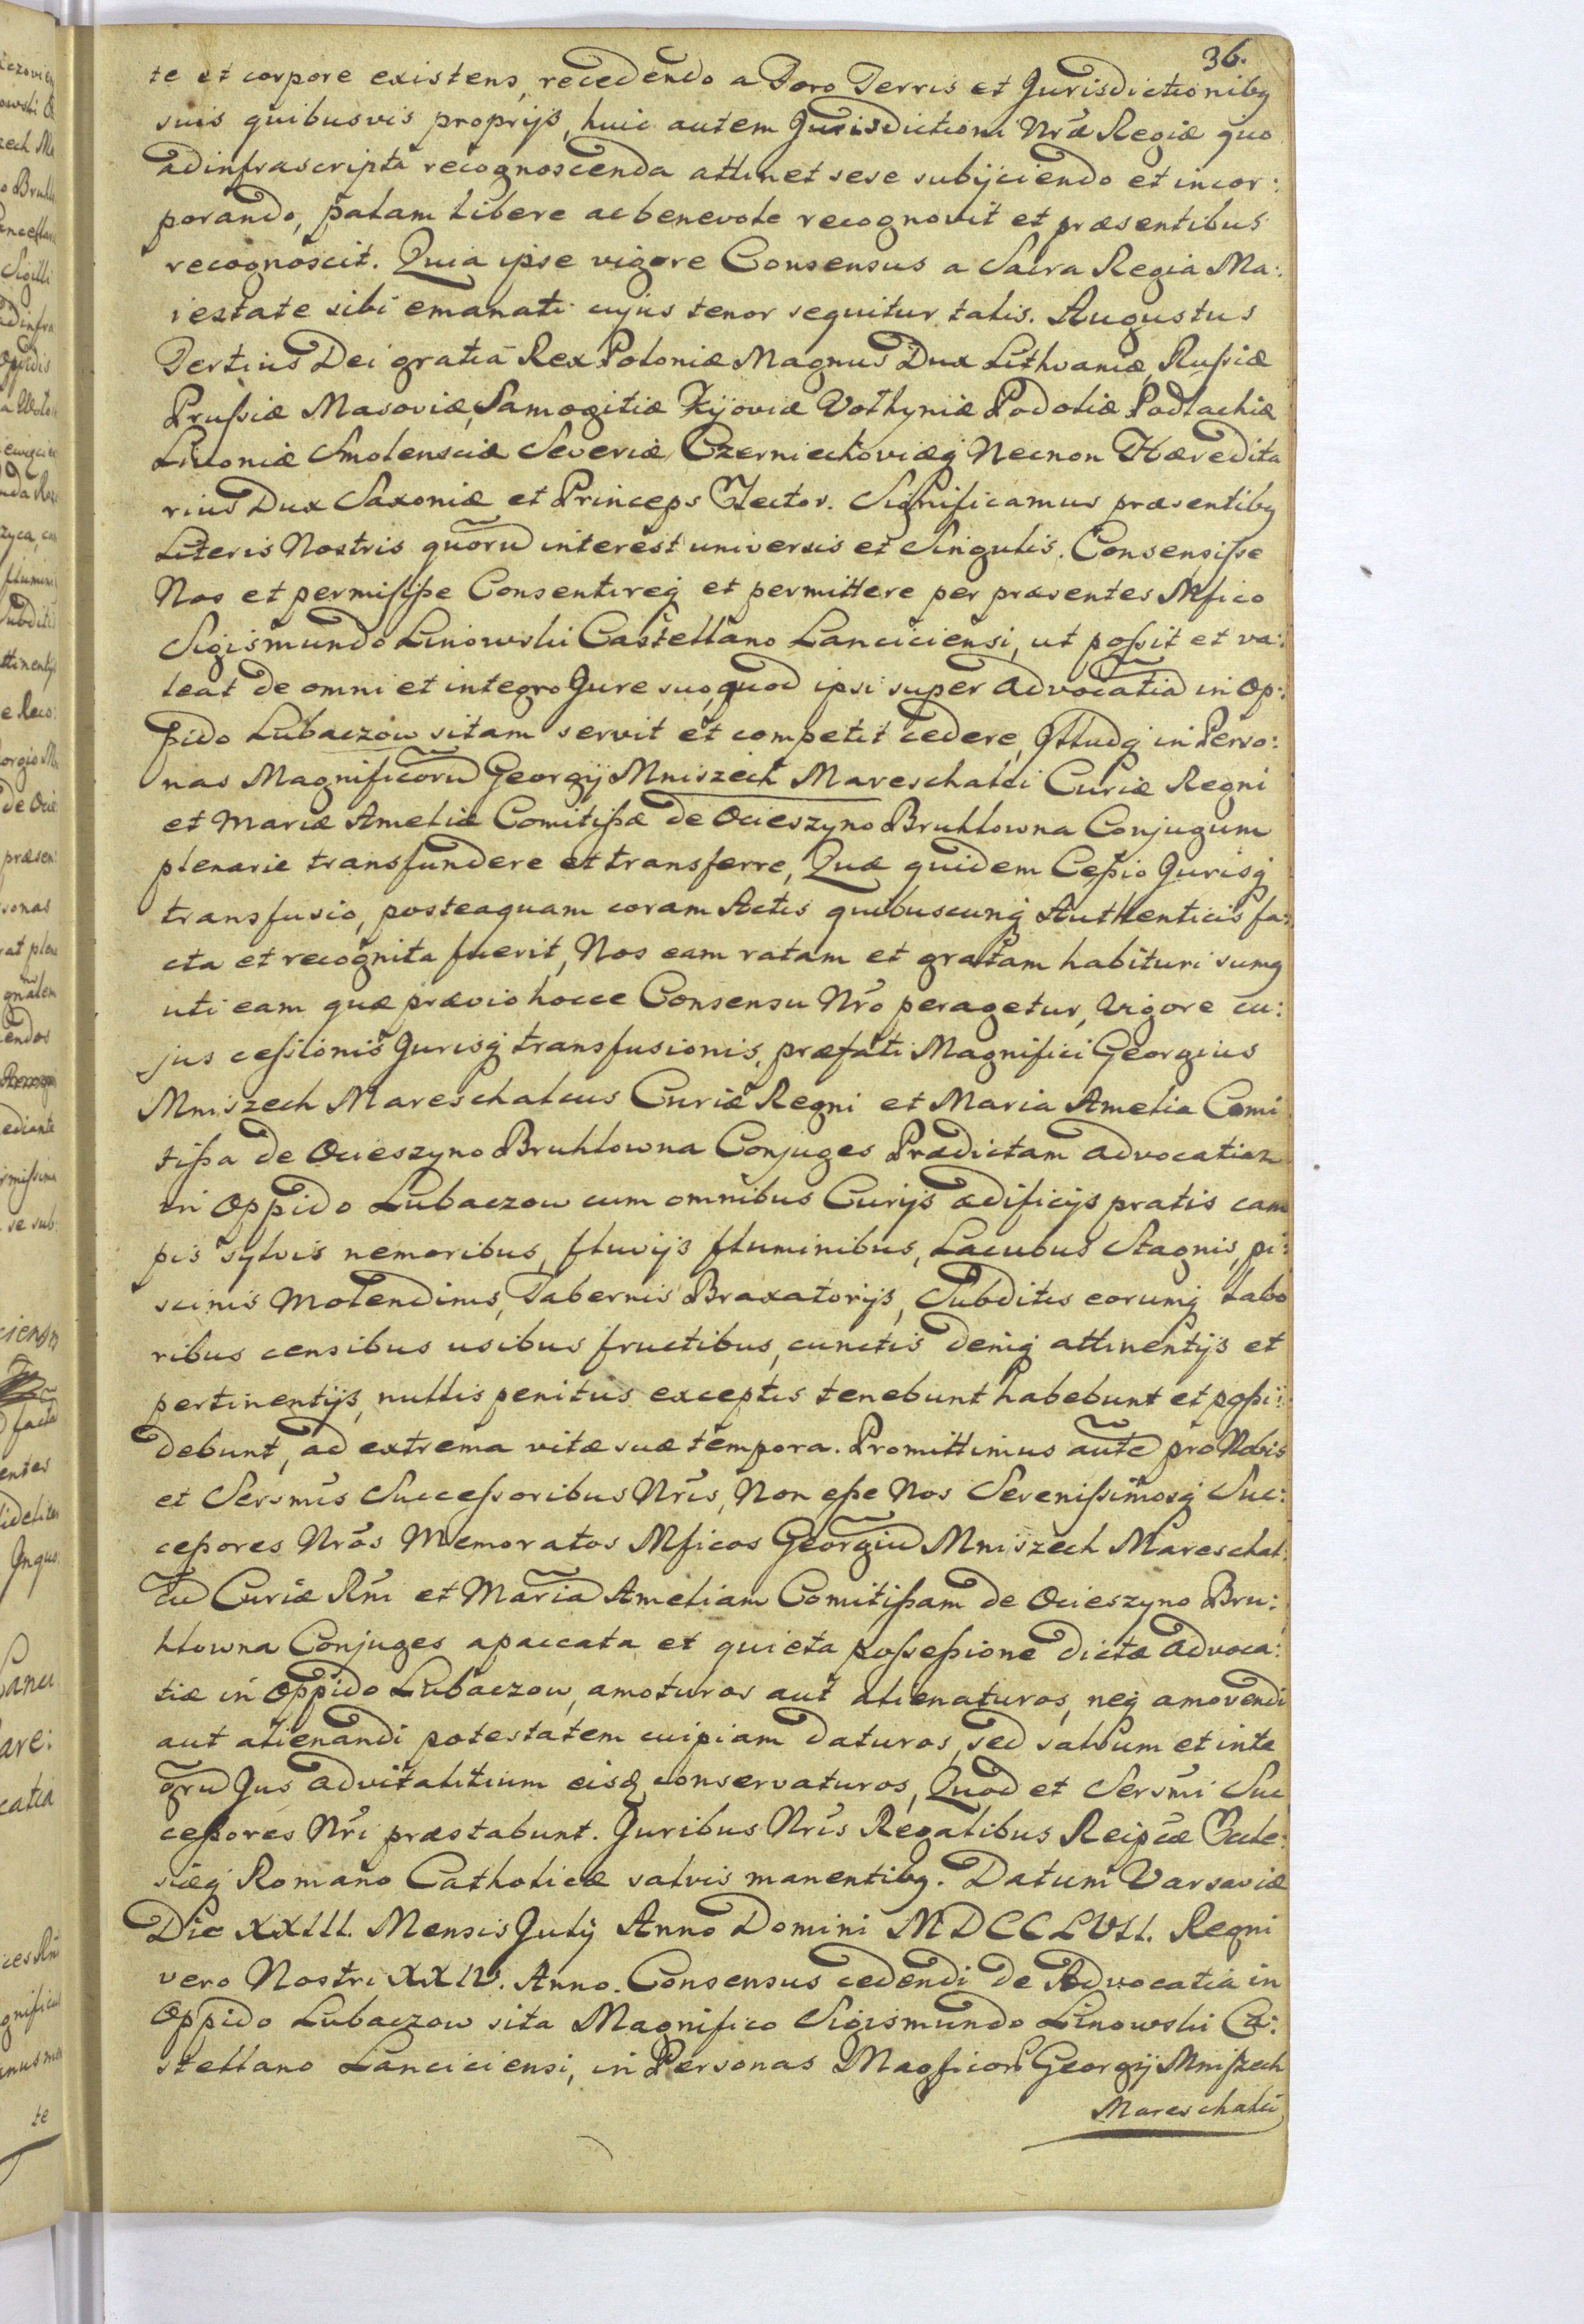 36.
te et corpore existens, recedendo a Foro Terris et Jurisdictionibq
suis quibusvis proprijs, huic autem Jurisdictioni Nrã Regiæ quo
ad infrascripta recognoscenda attinet sese subijciendo et incor:
porando, palam libere ac benevole recognovit et præsentibus
recognoscit. Quia ipse vigore Consensus a Sacra Regia Ma:
iestate sibi emanati cujus tenor sequitur talis. Augustus
Tertius Dei gratia Rex Poloniæ Magnus Dux Lithvaniæ, Russiæ
Prussiæ Masoviæ, Samogitiæ Kijoviæ Volhyniæ Podoliæ Podlachiæ
Livoniæ Smolensciæ Severiæ Czerniechoviæq Necnon Hæredita
rius Dux Saxoniæ et Princeps Elector. Significamus præsentibq
Literis Nostris quorũ interest universis et Singulis. Consensisse
Nos et permisisse Consentireq et permittere per præsentes Mfico
Sigismundo Linowski Castellano Lanciciensi, ut possit et va:
leat de omni et integro Jure suo, quod ipsi super Advocatiã in Op:
pido Lubaczow sitam servit et competit cedere, Illudq in Perso:
nas Magnificorũ Georgij Mniszech Mareschalci Curiæ Regni
et Mariæ Ameliæ Comitissæ de Ocieszyno Bruhlowna Conjugum
plenarie transfundere et transferre, Quæ quidem Cessio Jurisq
transfusio, posteaquam coram Actis quibuscunq Authenticis fa:
cta et recognita fuerit, Nos eam ratam et gratam habituri sumq
uti eam quæ prævio hocce Consensu Nrõ peragetur, Vigore cu:
jus cessionis Jurisq transfusionis, præfati Magnifici Georgius
Mniszech Mareschalcus Curiæ Regni et Maria Amelia Comi
tissa de Ocieszyno Bruhlowna Conjuges Prædictam Advocatiam
in Oppido Lubaczow cum omnibus Curijs ædificijs pratis cam
pis sylvis nemoribus, fluvijs fluminibus, Lacubus Stagnis, pi:
scinis Molendinis, Tabernis Braxatorijs, Subditis eorumq labo
ribus censibus usibus fructibus, cunctis deniq attinentijs et
pertinentijs, nullis penitus exceptis tenebunt habebunt et possi:
debunt, ad extrema vitæ suæ tempora. Promittimus autẽ pro Nobis
et Sersmis Successoribus Nrĩs, Non esse Nos Serenissimosq Suc:
cessores Nrõs Memoratos Mficos Georgiũ Mniszech Mareschal:
cũ Curiæ Rñi et Mariã Ameliam Comitissam de Ocieszyno Bru:
hlowna Conjuges a paccata et quieta possessione dictæ Advoca:
tiæ in Oppido Lubaczow, amoturos aut alienaturos, neq amovendi
aut alienandi potestatem cuipiam daturos, sed salvum et inte
grũ Jus advitalitium eisq conservaturos, Quod et Sersmi Suc
cessores Nri præstabunt. Juribus Nrĩs Regalibus Reipcæ Eccle:
siæq Romano Catholicæ salvis manentibq. Datum Varsaviæ
Die XXIII. Mensis Julij Anno Domini MDCCLVII. Regni
vero Nostri XXIV. Anno. Consensus cedendi de Advocatia in
Oppido Lubaczow sita Magnifico Sigismundo Linowski Ca:
stellano Lanciciensi, in Personas Magficorũ Georgij Mniszech
Mareschalci